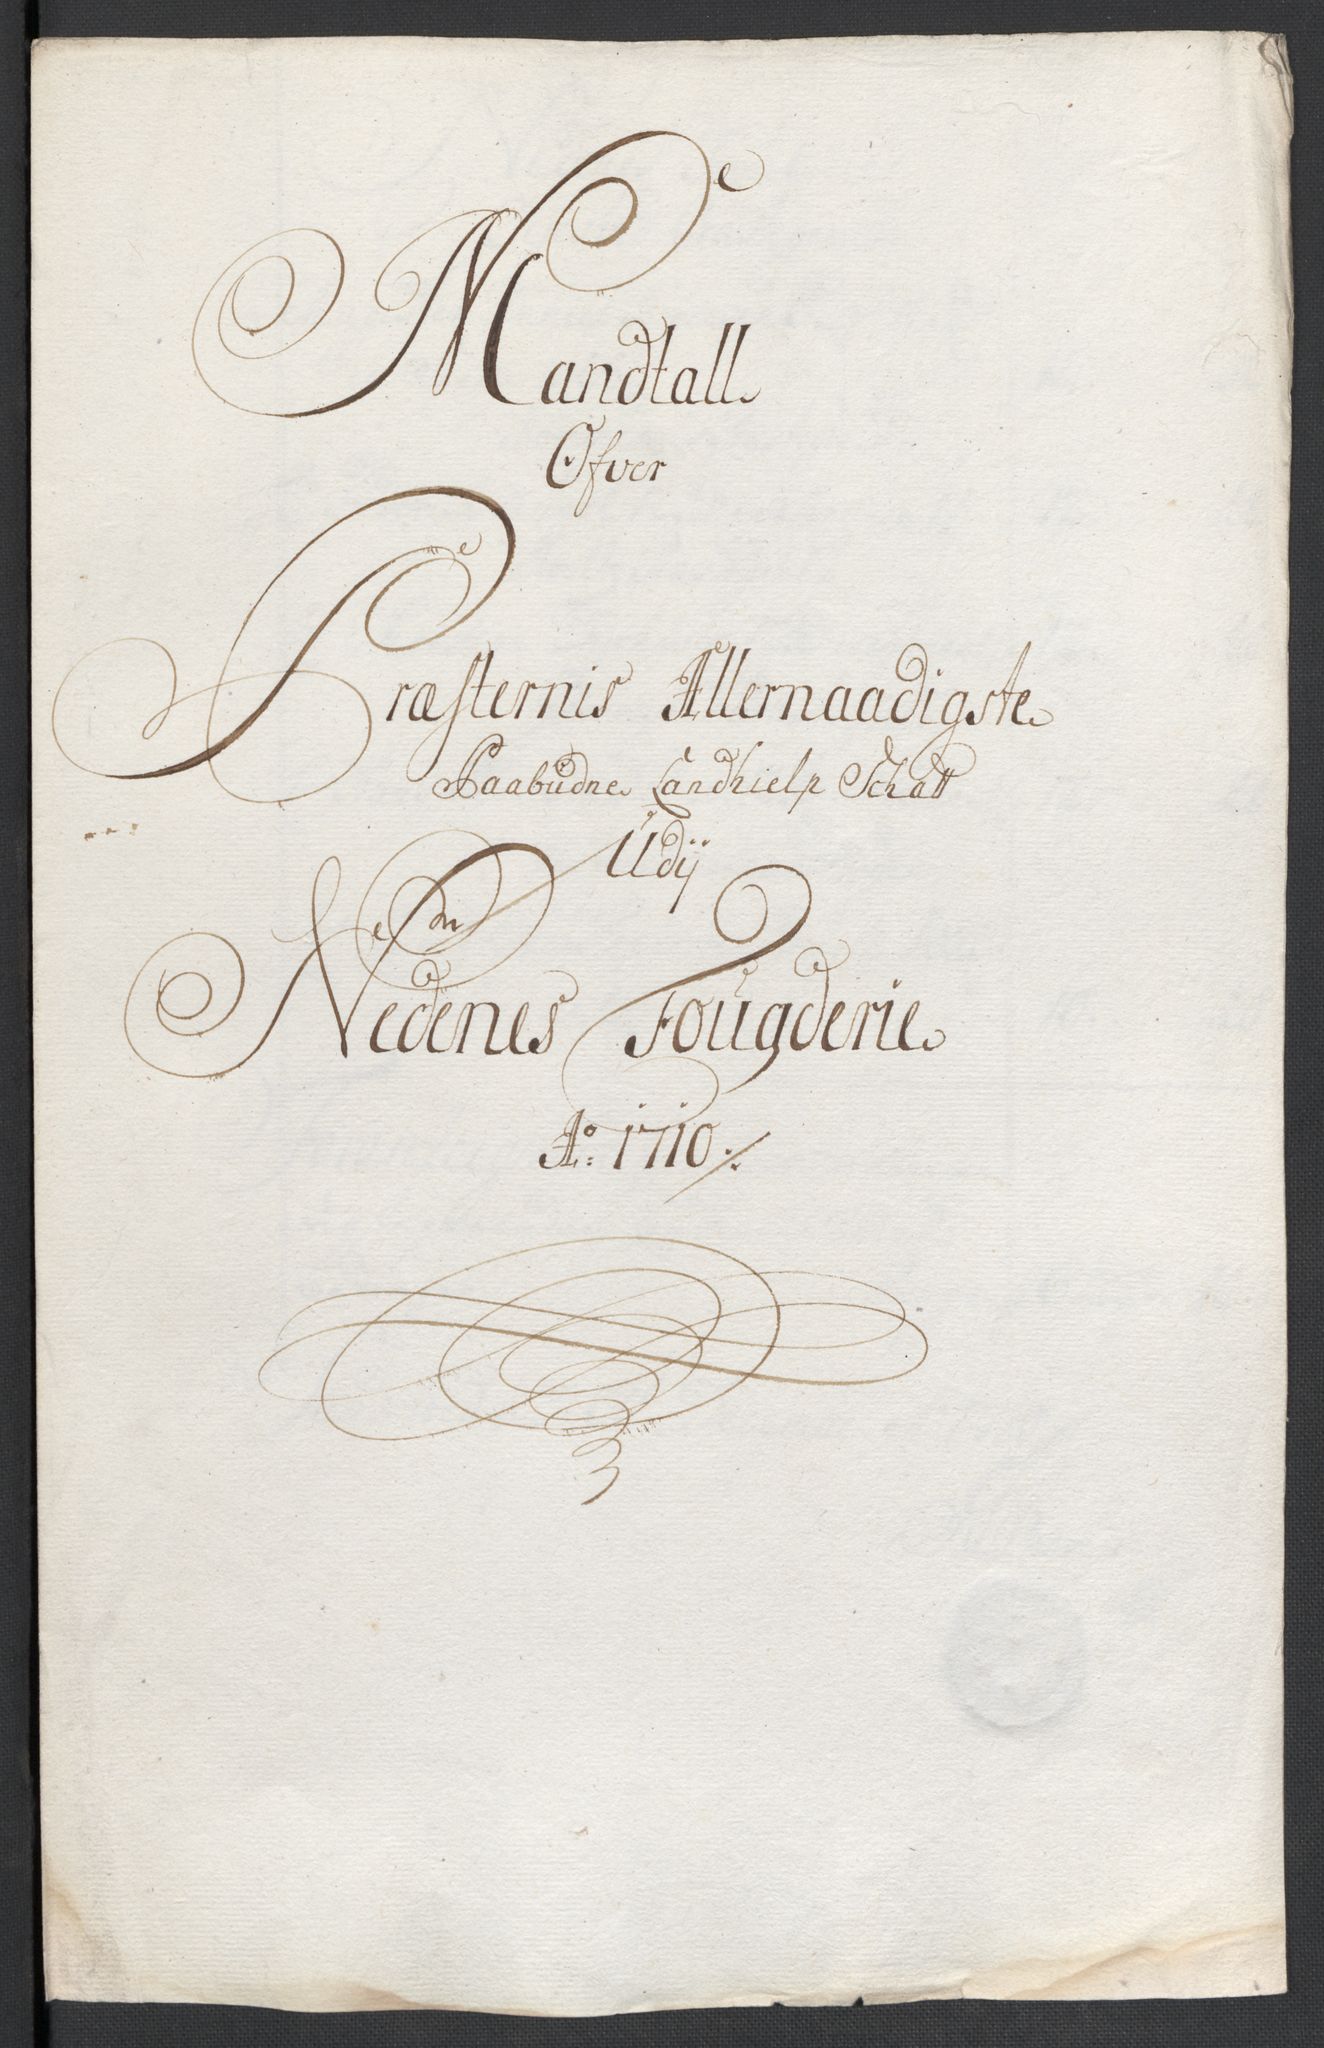 Mandtall
Ofver
Præsternis Allernaadigste
Paabudne Landhielp Schatt
Udij
Nedenes Fougderie
Ao: 1710